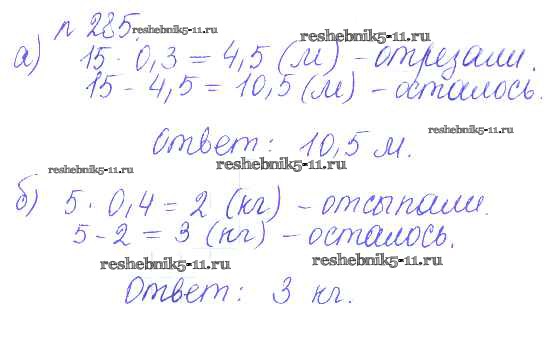 n 285. reshebnik5-11.ru reshebnik5-11.ru
а) 15 · 0,3 = 4,5 (м) - отрезали.
15 - 4,5 = 10,5 (м) - осталось.
reshebnik5-11.ru
Ответ: 10,5 м.
reshebnik5-11.ru reshebnik5-11.ru
б) 5 · 0,4 = 2 (кг) - отсыпали.
5 - 2 = 3 (кг) - осталось.
reshebnik5-11.ru reshebnik5-11.ru
Ответ: 3 кг.